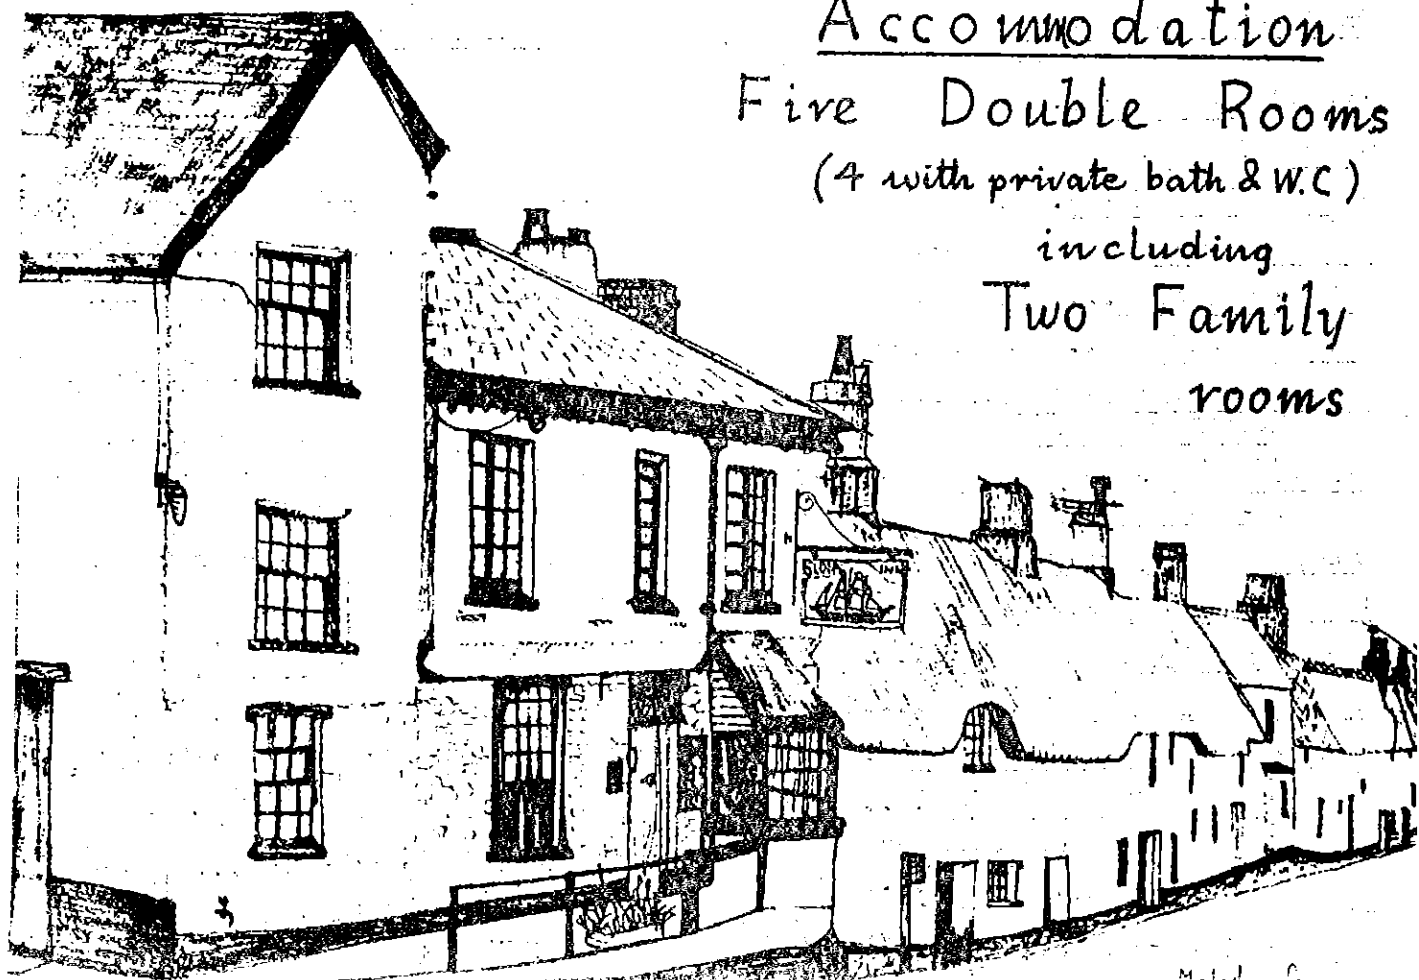 Accommodation
Five Double Rooms
(4 with private bath & W.C)
including
Two Family
rooms
INN